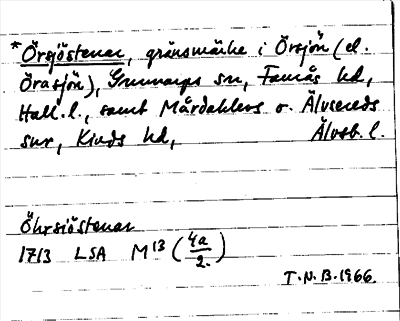 *Örsjöstenar, gränsmärke i Örsjön (el.
Örasjön), Gunnarps sn, Faurås hd,
Hall. l., samt Mårdaklevs o. Älvsereds
snr, Kinds hd, Älvsb. l.
Öhrsiöstenar
1713 LSA M13 (4a/2.)
T.N.B. 1966.